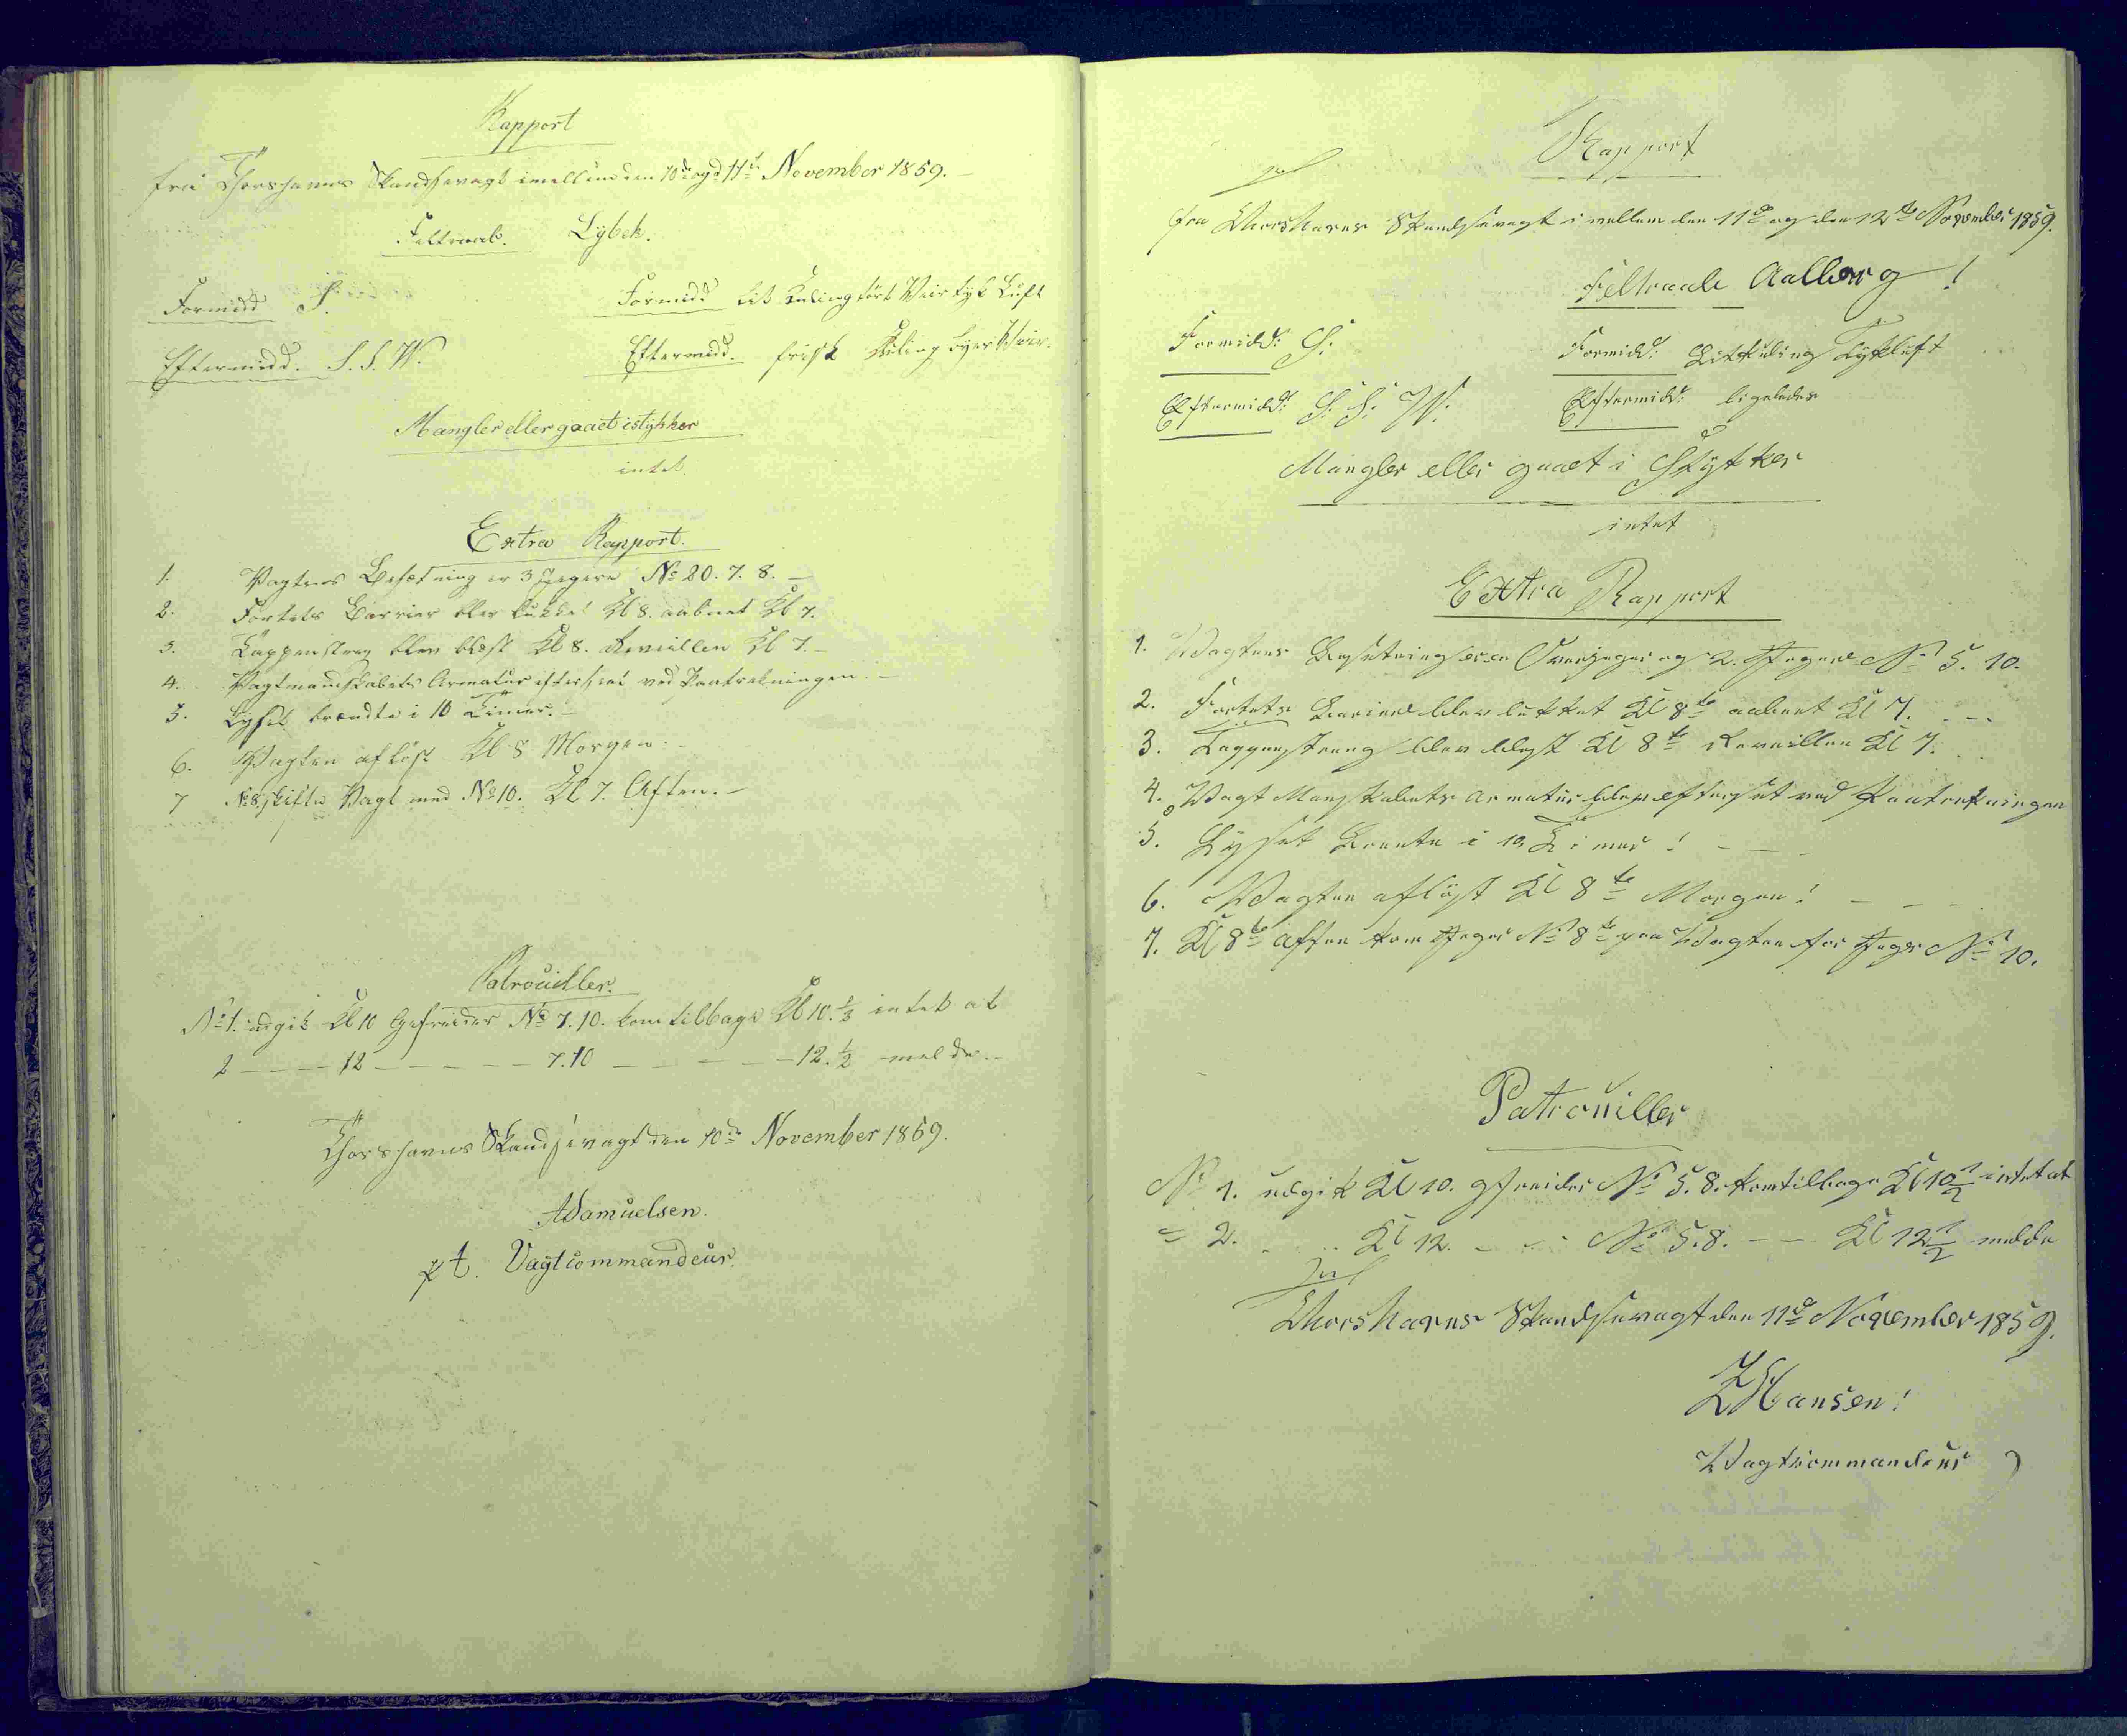 Rapport
fra Thorshavns Skandsevagt imellem den 10de og d 11te November 1859.
Feltraab. Lybek.
Formidd S.
Formidd let Kuling tört Veir tyk Luft
Eftermidd. S. S. W.
Eftermidd. frisk Kuling Byer Veir.
Mangler eller gaaet istykker
intet
Extra Rapport.
1. Vagtens Besætning er 3 Jægere No 20. 7. 8.
2. Fortets Barrier blev lukket Kl 8. aabnet Kl 7.
3. Tappenstreg blev blæst Kl 8. Reveillen Kl 7.
4. Vagtmandskabets Armatur efterseet ved Paatrækningen.
5. Lyset brændte i 10 Timer.
6. Vagten aflöst Kl 8 Morgen.
7 No 8 skiftede Vagt med No 10. Kl 7. Aften.
Patrouiller.
No 1. udgik Kl 10 Gefreider No 7. 10. kom tilbage Kl 10. 1/2 intet at
2 — — — 12 — — — — — 7. 10 — — — — — 12. 1/2 melde.
Thorshavns Skandsevagt den 10de November 1859.
ASamuelsen.
pt. Vagtcommandeur.
Rapport
fra Thorshavns Skandsevagt i mellem den 11te og den 12te November 1859.
Feltraab Aalborg!
Formidd: S:
Formidd: Let Kuling Tyk Luft
Eftermidd: S: S: W:
Eftermidd: ligeledes
Mangler eller gaaet i Stykker
intet
Extra Rapport
1. Vagtens Besetning er en Overjeger og 2. Jegere No 5. 10.
2. Fortets Bariere blev lukket Kl 8te aabnet Kl 7.
3. Tappenstreng blev blest Kl 8te Reveillen Kl 7.
4. Vagt Manskabets armatur blev efterset ved Paatrekningen
5. Lysset Brente i 10 Timer!
6. Vagten aflöst Kl 8te Morgen!
7. Kl 8te Aften kom Jeger No 8te paa Vagten for Jeger No 10.
Patrouiller
No 1. udgik Kl 10. gfreider No 5. 8. kom tilbage Kl 10 1/2 intet at
= 2. . .. Kl 12. - - - No 5. 8. - - Kl 12 1/2 melde
Thorshavns Skandsevagt den 11te November 1859.
ZHansen!
Vagtcommandeur